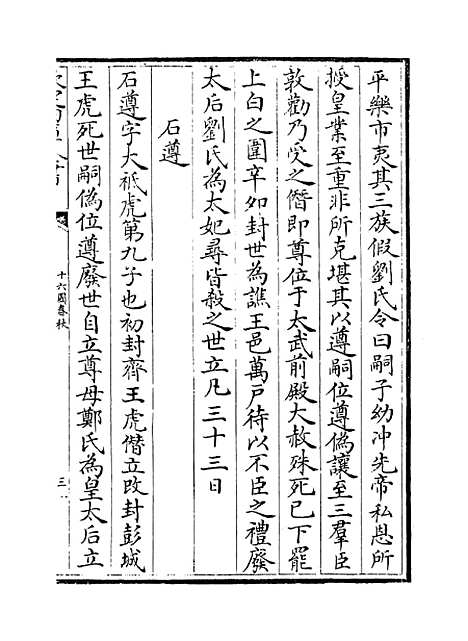 平樂市夷其三族假劉氏令曰嗣子幼冲先帝私恩所
授皇業至重非所克堪其以遵嗣位遵偽讓至三羣臣
敦勸乃受之僭即尊位于太武前殿大赦殊死已下罷
上白之圍辛如封世為譙王邑萬戶待以不臣之禮廢
太后劉氏為太妃尋皆殺之世立凡三十三日
石遵
石遵字大祗虎第九子也初封齊王虎僭立改封彭城
王虎死世嗣偽位遵廢世自立尊母鄭氏為皇太后立
十六國春秋